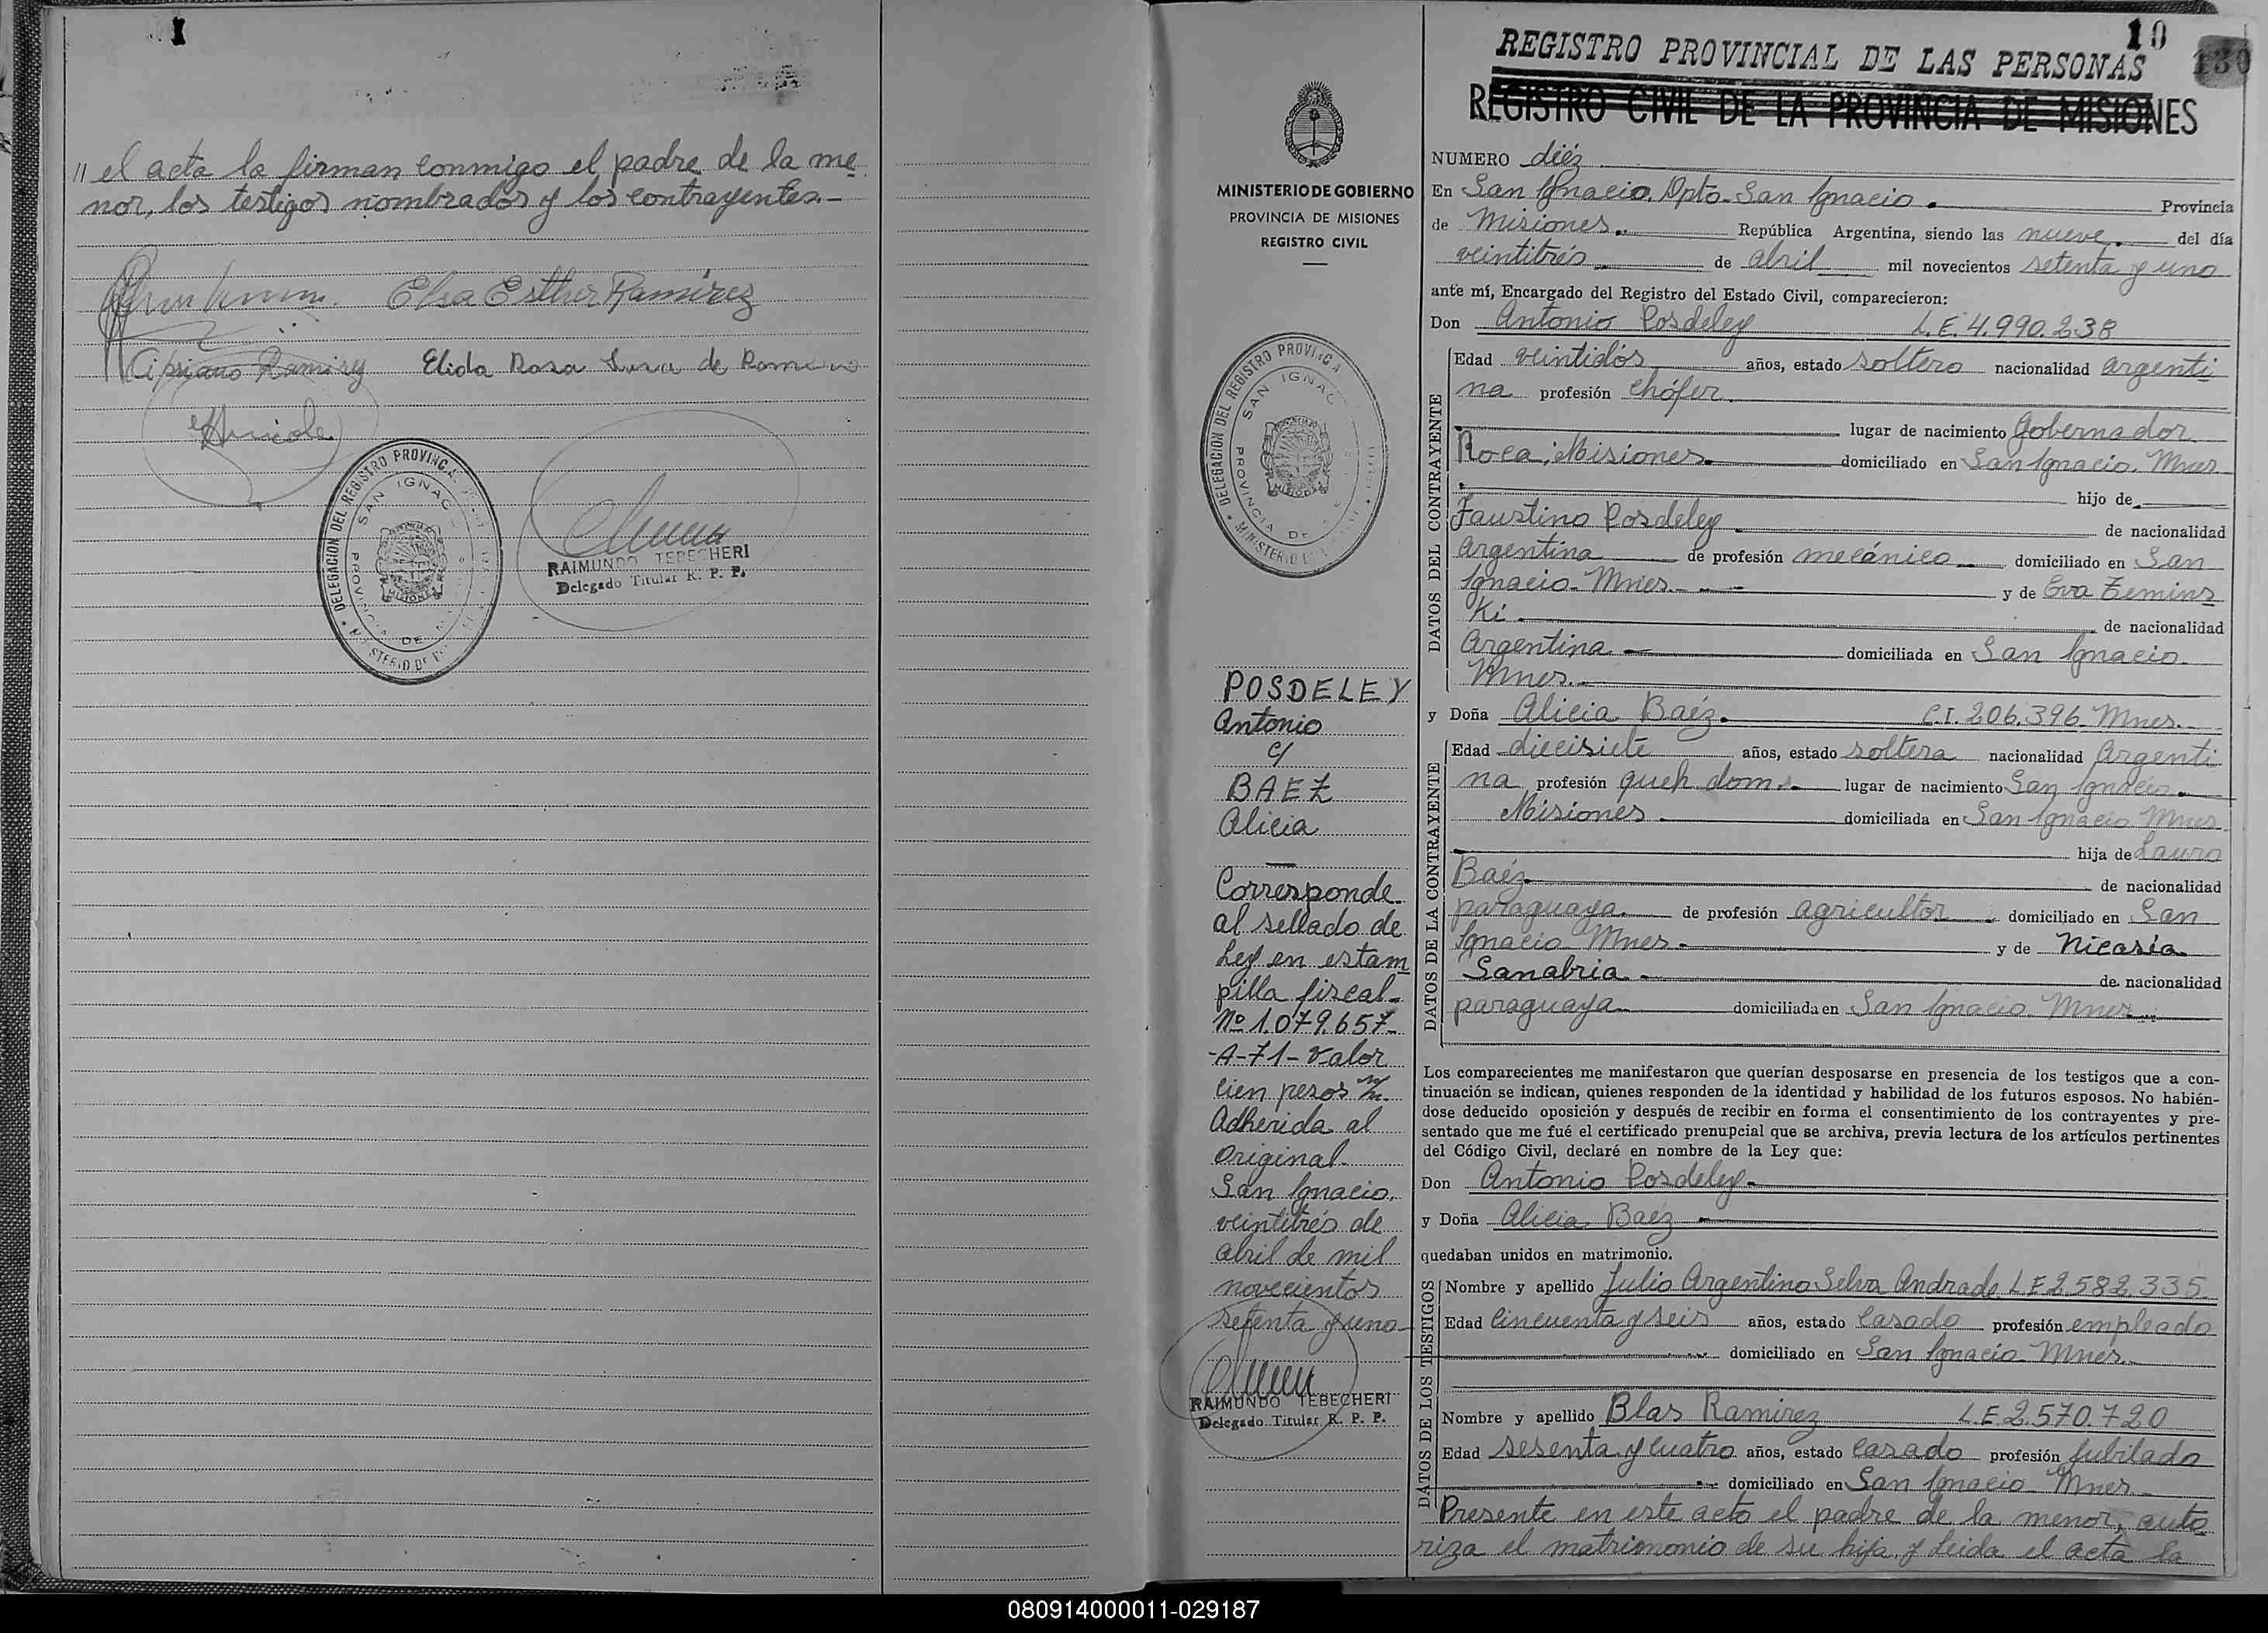 1
// el acta la firman conmigo el padre de la me
nor, los testigos nombrados y los contrayentes.-
Elsa Esther Ramírez
Cipriano Ramirez Elida Rosa de
DELEGACION DEL REGISTRO PROVINCIAL
SAN IGNACIO
PROVINCIA DE MISIONES
RAIMUNDO TEBECHERI
Delegado Titular R. P. P.
10
130
REGISTRO PROVINCIAL DE LAS PERSONAS
REGISTRO CIVIL DE LA PROVINCIA DE MISIONES
MINISTERIO DE GOBIERNO
PROVINCIA DE MISIONES
REGISTRO CIVIL
DELEGACION DEL REGISTRO PROVINCIAL
SAN IGNACIO
PROVINCIA DE
POSDELEY
Antonio
c/
BAEZ
Alicia
Corresponde
al sellado de
Ley en estam
pilla fiscal-
Nº 1.079.657-
-A-71- Valor
cien pesos m/n.
Adherida al
Original-
San Ignacio,
veintitrés de
abril de mil
novecientos
setenta y uno-
RAIMUNDO TEBECHERI
Delegado Titular R. P. P.
NUMERO diéz
En San Ignacio, Dpto. San Ignacio. Provincia
de Misiones. República Argentina, siendo las nueve. del día
veintitrés de abril mil novecientos setenta y uno
ante mí, Encargado del Registro del Estado Civil, comparecieron:
Don Antonio Posdeley L.E. 4.990.238
DATOS DEL CONTRAYENTE
Edad veintidós años, estado soltero nacionalidad argenti
na profesión chófer.
lugar de nacimiento Gobernador
Roca, Misiones. domiciliado en San Ignacio. Mnes
hijo de
Faustino Posdeley. de nacionalidad
argentina de profesión mecánico domiciliado en San
Ignacio- Mnes. y de Eva Zemins
ki. de nacionalidad
Argentina domiciliada en San Ignacio.
Mnes.
y Doña Alicia Baéz. C.I. 206.396 Mnes.
DATOS DE LA CONTRAYENTE
Edad diecisiete años, estado soltera nacionalidad Argenti
na profesión queh. dom. lugar de nacimiento San Ignacio.
Misiones domiciliada en San Ignacio Mnes
hija de Lauro
Baéz de nacionalidad
paraguaya. de profesión agricultor domiciliado en San
Ignacio Mnes. y de Nicasia
Sanabria. de nacionalidad
paraguaya domiciliada en San Ignacio Mnes
Los comparecientes me manifestaron que querían desposarse en presencia de los testigos que a con-
tinuación se indican, quienes responden de la identidad y habilidad de los futuros esposos. No habién-
dose deducido oposición y después de recibir en forma el consentimiento de los contrayentes y pre-
sentado que me fué el certificado prenupcial que se archiva, previa lectura de los artículos pertinentes
del Código Civil, declaré en nombre de la Ley que:
Don Antonio Posdeley.
y Doña Alicia Baéz
quedaban unidos en matrimonio.
DATOS DE LOS TESTIGOS
Nombre y apellido Julio Argentino Selva Andrade. L E 2.582.335
Edad cincuenta y seis años, estado casado profesión empleado
domiciliado en San Ignacio Mnes.
Nombre y apellido Blas Ramirez L.E. 2.570.720
Edad sesenta y cuatro años, estado casado profesión jubilado
domiciliado en San Ignacio Mnes.
Presente en este acto el padre de la menor, auto
riza el matrimonio de su hija y leida el acta la
080914000011-029187